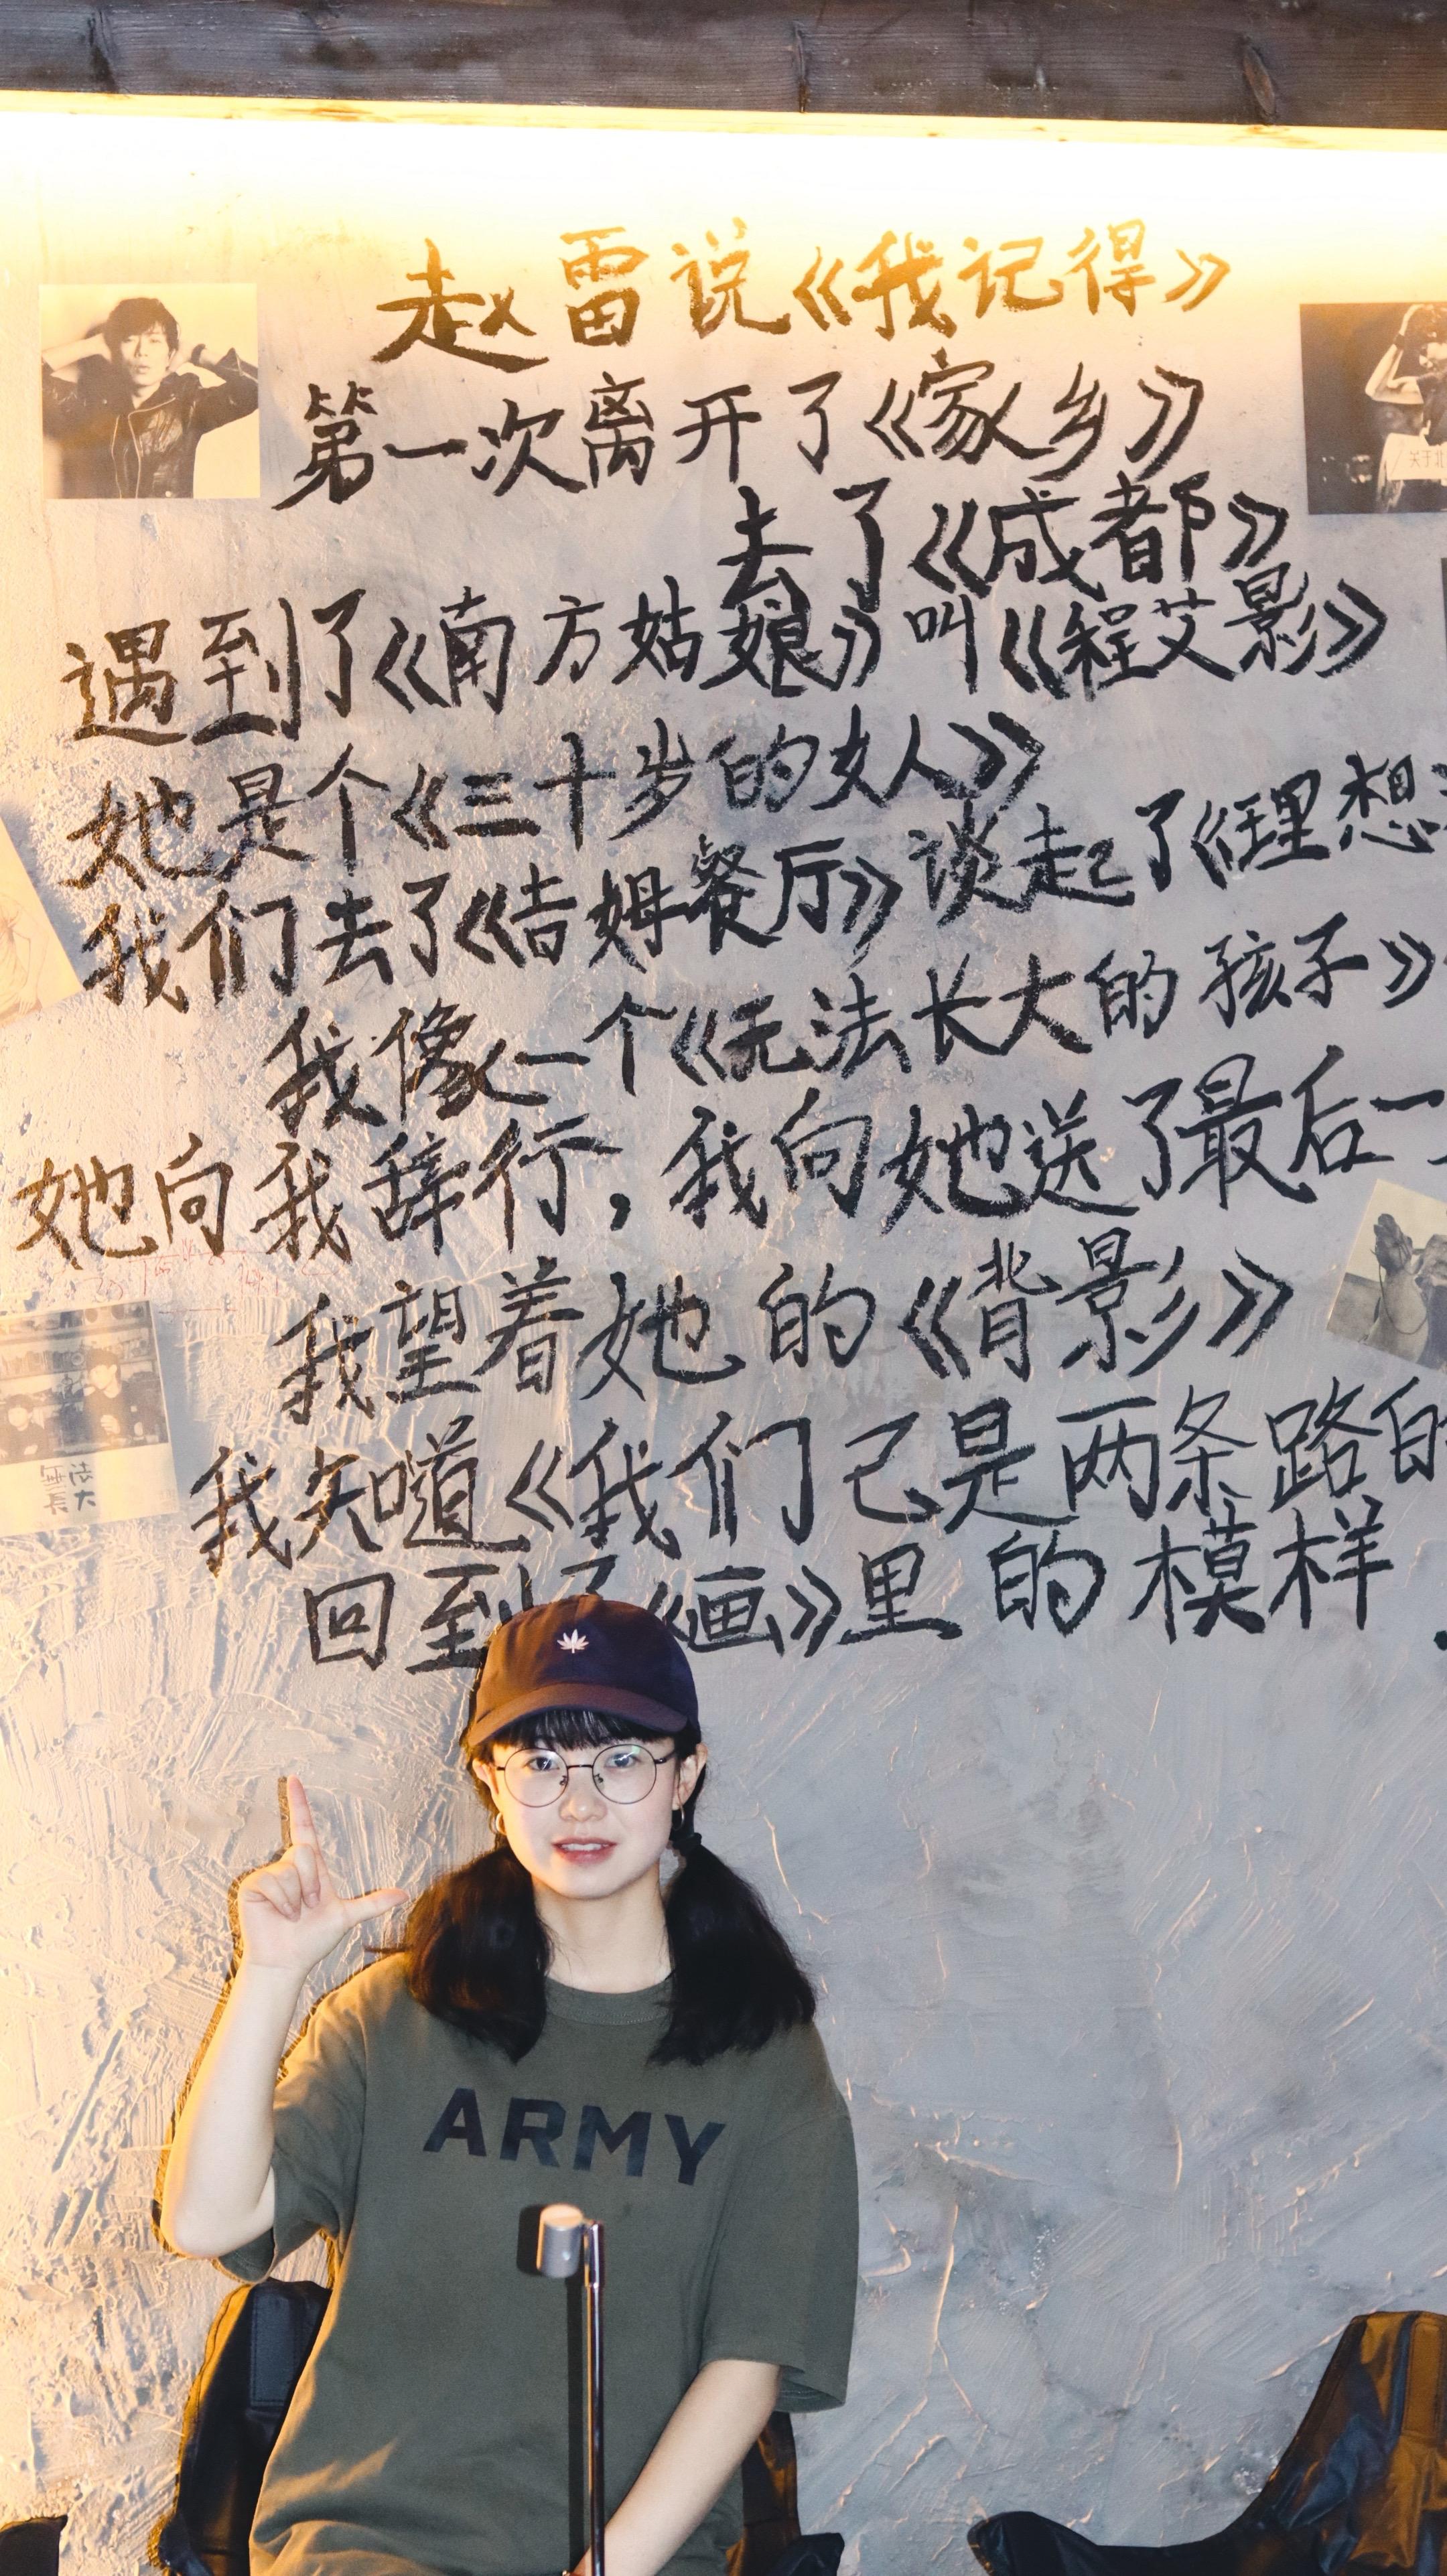 赵雷说《我记得》
第一次离开了《家乡》
去了《成都》
遇到了《南方姑娘》叫《程艾影》
她是个《三十岁的女人》
我们去了《吉姆餐厅》谈起了《理想
我像一个《无法长大的孩子》
她向我辞行，我向她送了最后一
我望着她的《背影》
我知道《我们已是两条路的
回到了《画》里的模样
关于北
無法長大
ARMY